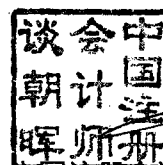 中国注册
会计师
谈朝晖